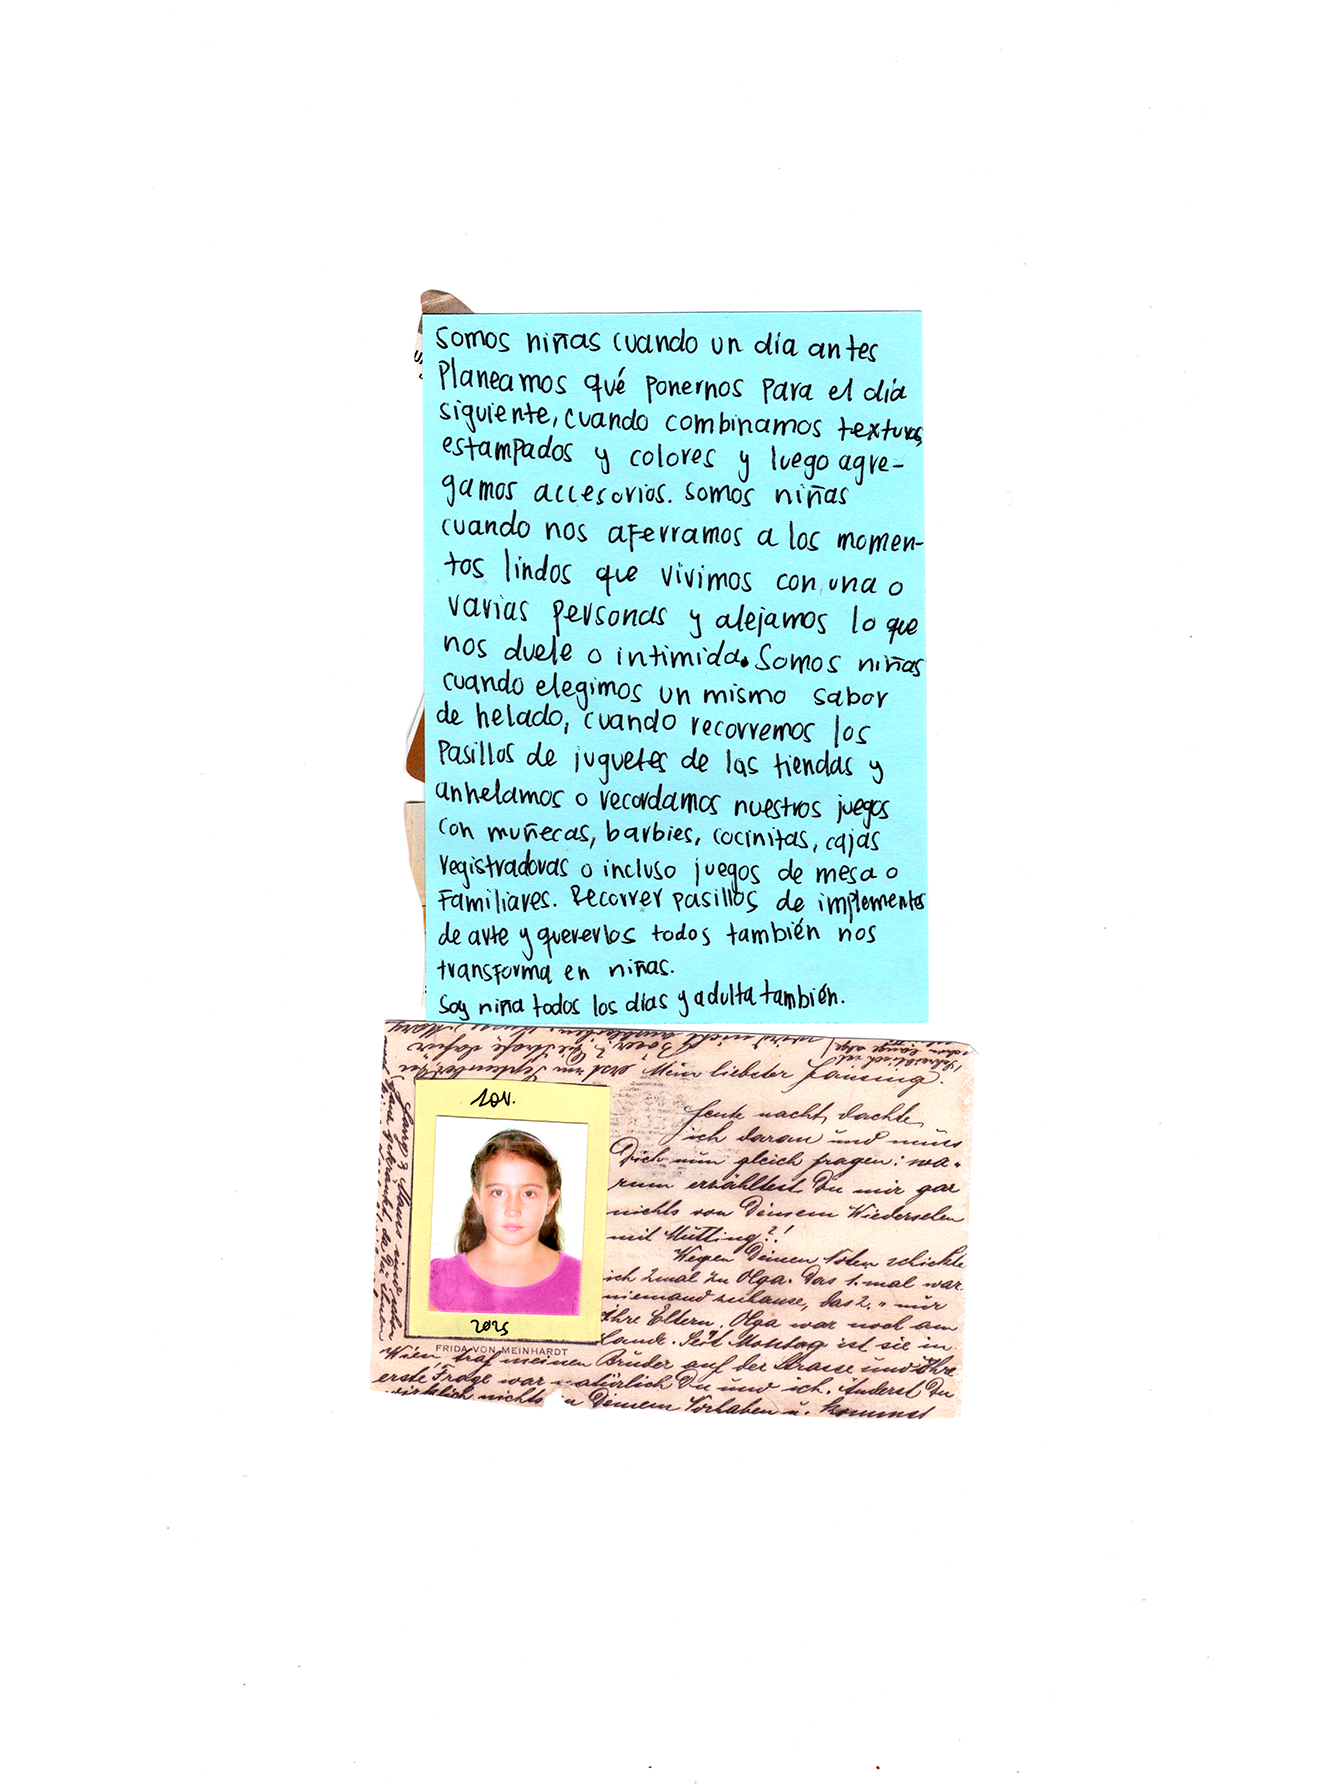 Somos niñas cuando un día antes
Planeamos qué ponernos para el día
siguiente, cuando combinamos texturas,
estampados y colores y luego agre-
gamos accesorios. Somos niñas
cuando nos aferramos a los momen-
tos lindos que vivimos con una o
varias personas y alejamos lo que
nos duele o intimida. Somos niñas
cuando elegimos un mismo sabor
de helado, cuando recorremos los
Pasillos de juguetes de las tiendas y
anhelamos o recordamos nuestros juegos
con muñecas, barbies, cocinitas, cajas
registradoras o incluso juegos de mesa o
Familiares. Recorrer pasillos de implementos
de arte y quererlos todos también nos
transforma en niñas.
Soy niña todos los días y adulta también.
Mein liebster
Heute nacht, dachte
ich daran und muss
Dich nun gleich fragen: wa-
rum erzähltest Du mir gar
nichts von Deinem Wiedersehen
mit Mutting?!
Wegen Deinen Noten schickte
ich 2mal zu Olga. Das 1. mal war
niemand zuhause, das 2. " nur
Ihre Eltern. Olga war noch am
Lande. Seit Montag ist sie in
Wien, traf meinen Bruder auf der Strasse und Ihre
erste Frage war natürlich Du und ich. Änderst Du
wirklich nichts in Deinem Vorhaben u. kommst
nov.
2025
FRIDA VON MEINHARDT